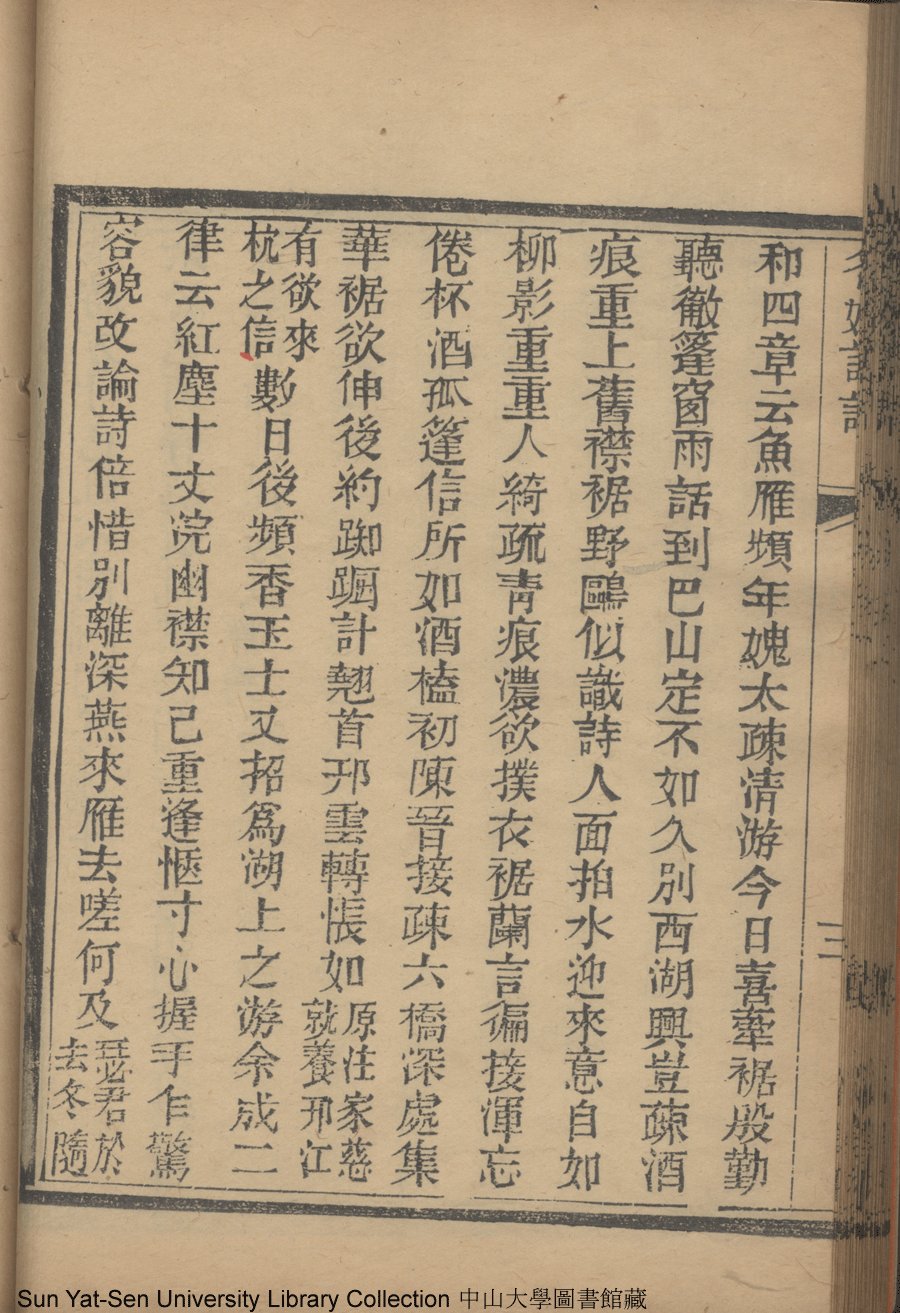 名媛詩話
三
和四章云魚雁頻年媿太疎清游今日喜牽裾殷勤
聽徹篷窗雨話到巴山定不如久別西湖興豈疎酒
痕重上舊襟裾野鷗似識詩人面拍水迎來意自如
柳影重重人綺疏青痕濃欲撲衣裾蘭言徧接渾忘
倦杯酒孤篷信所如酒榼初陳晉接疎六橋深處集
華裾欲伸後約踟躕計翹首邗雲轉悵如原注家慈就養邗江
有欲來杭之信數日後頻香玉士又招為湖上之游余成二
律云紅塵十丈浣幽襟知己重逢愜寸心握手乍驚
容貌改論詩倍惜別離深燕來雁去嗟何及瑟君於去冬隨
Sun Yat-Sen University Library Collection 中山大學圖書館藏